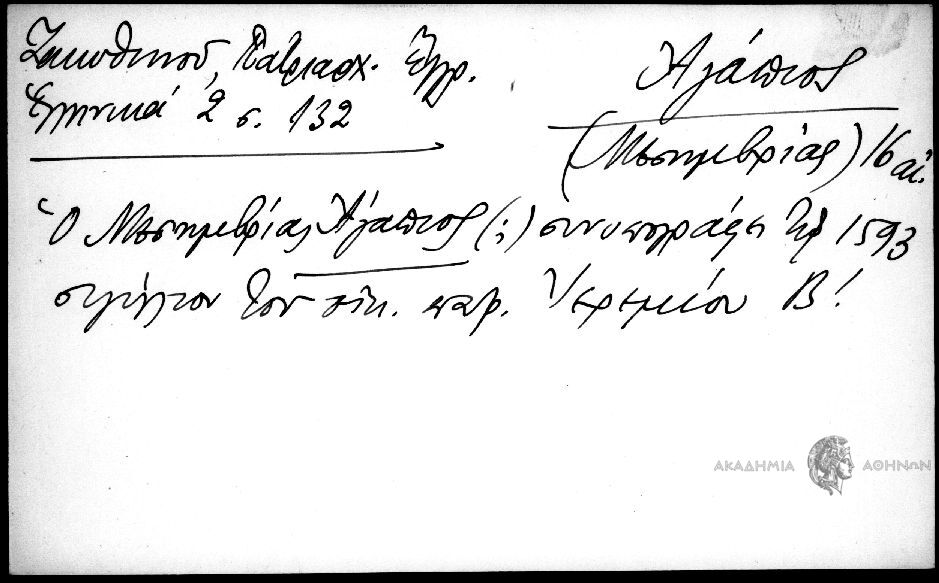 Ζακυθηνού, Πατριαρχ. Έγγρ.
Ἑλληνικά 2 σ. 132
Ἀγάπιος
(Μεσημβρίας) 16 αἰ.
Ὁ Μεσημβρίας Ἀγάπιος (;) συνυπογράφει τῷ 1593
σιγίλλιον τοῦ οἰκ. πατρ. Ἱερεμίου Β!
ΑΚΑΔΗΜΙΑ ΑΘΗΝΩΝ